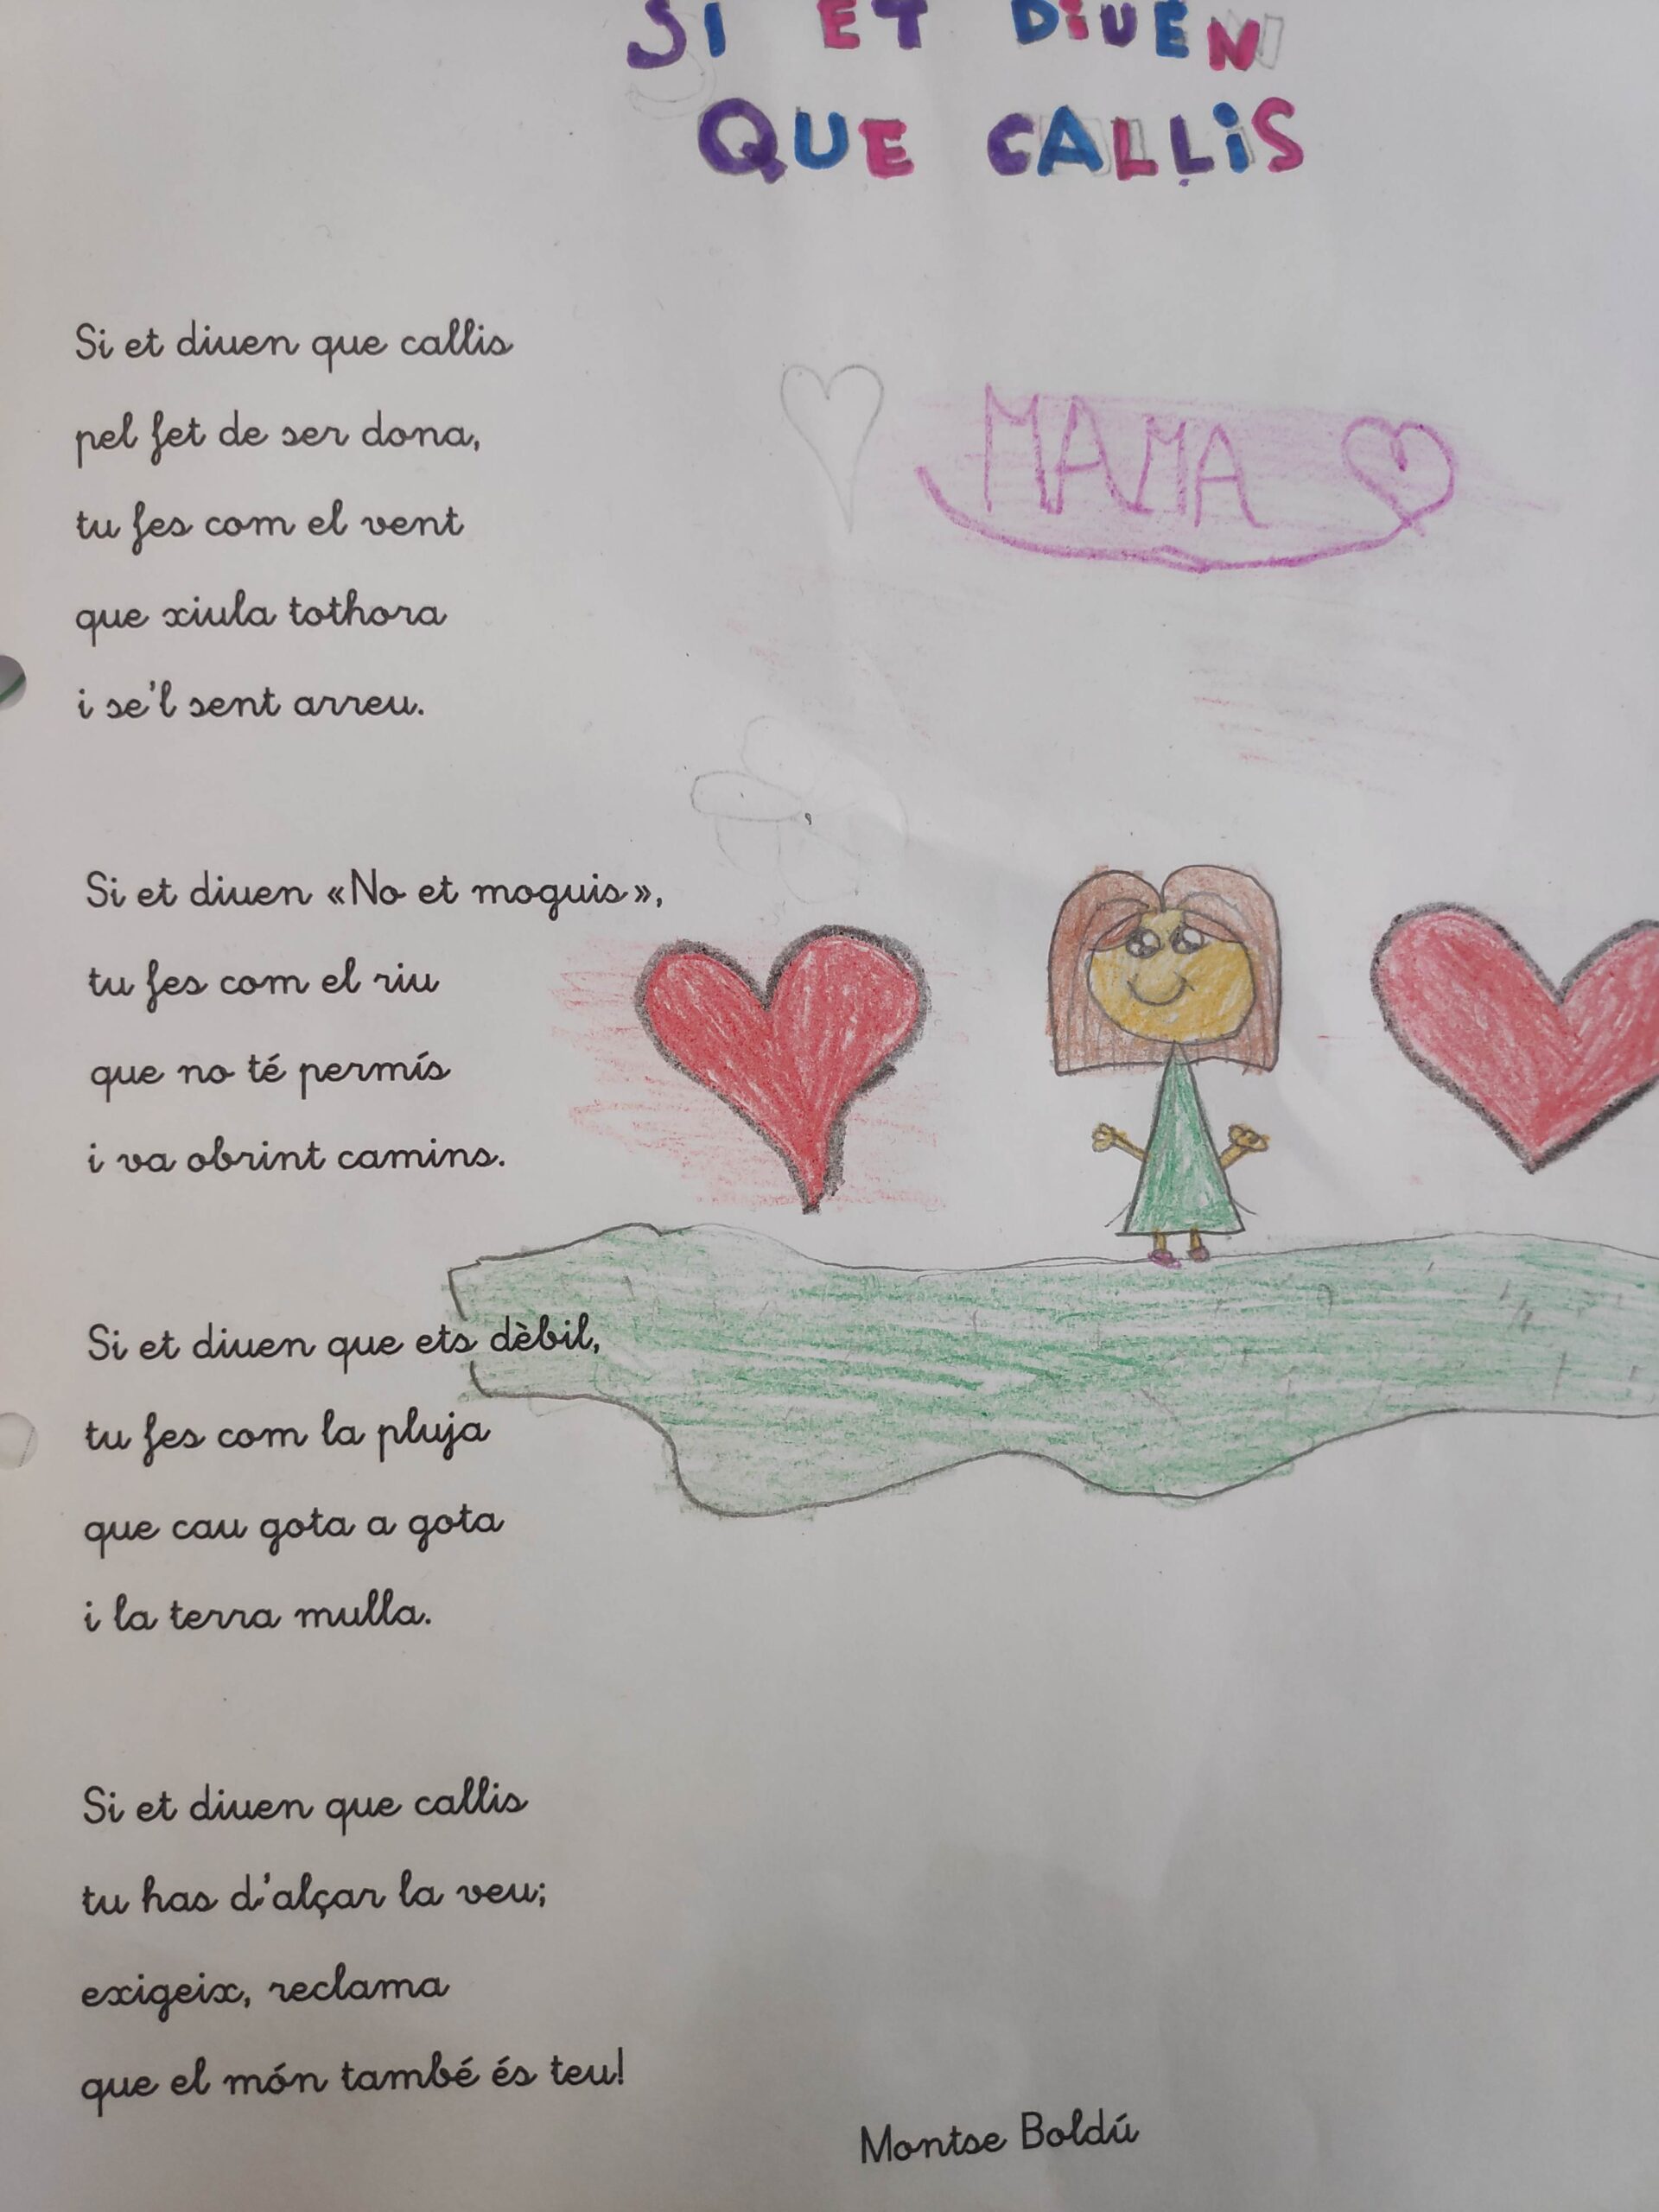 SI ET DIUEN
QUE CALLIS
Si et diuen que callis
pel fet de ser dona,
tu fes com el vent
que xiula tothora
i se'l sent arreu.
MAMA
Si et diuen «No et moguis»,
tu fes com el riu
que no té permís
i va obrint camins.
Si et diuen que ets dèbil,
tu fes com la pluja
que cau gota a gota
i la terra mulla.
Si et diuen que callis
tu has d'alçar la veu;
exigeix, reclama
que el món també és teu!
Montse Boldú